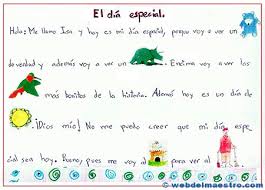 El día especial.
Hola: Me llamo Isa y hoy es mi día especial, porque voy a ver un
de verdad y además voy a ver un . Encima voy a ver los
más bonitos de la historia. Además hoy es un día de
¡Dios mío! No me puedo creer que mi día espe
cial sea hoy. Bueno, pues me voy al para ver al
© webdelmaestro.com